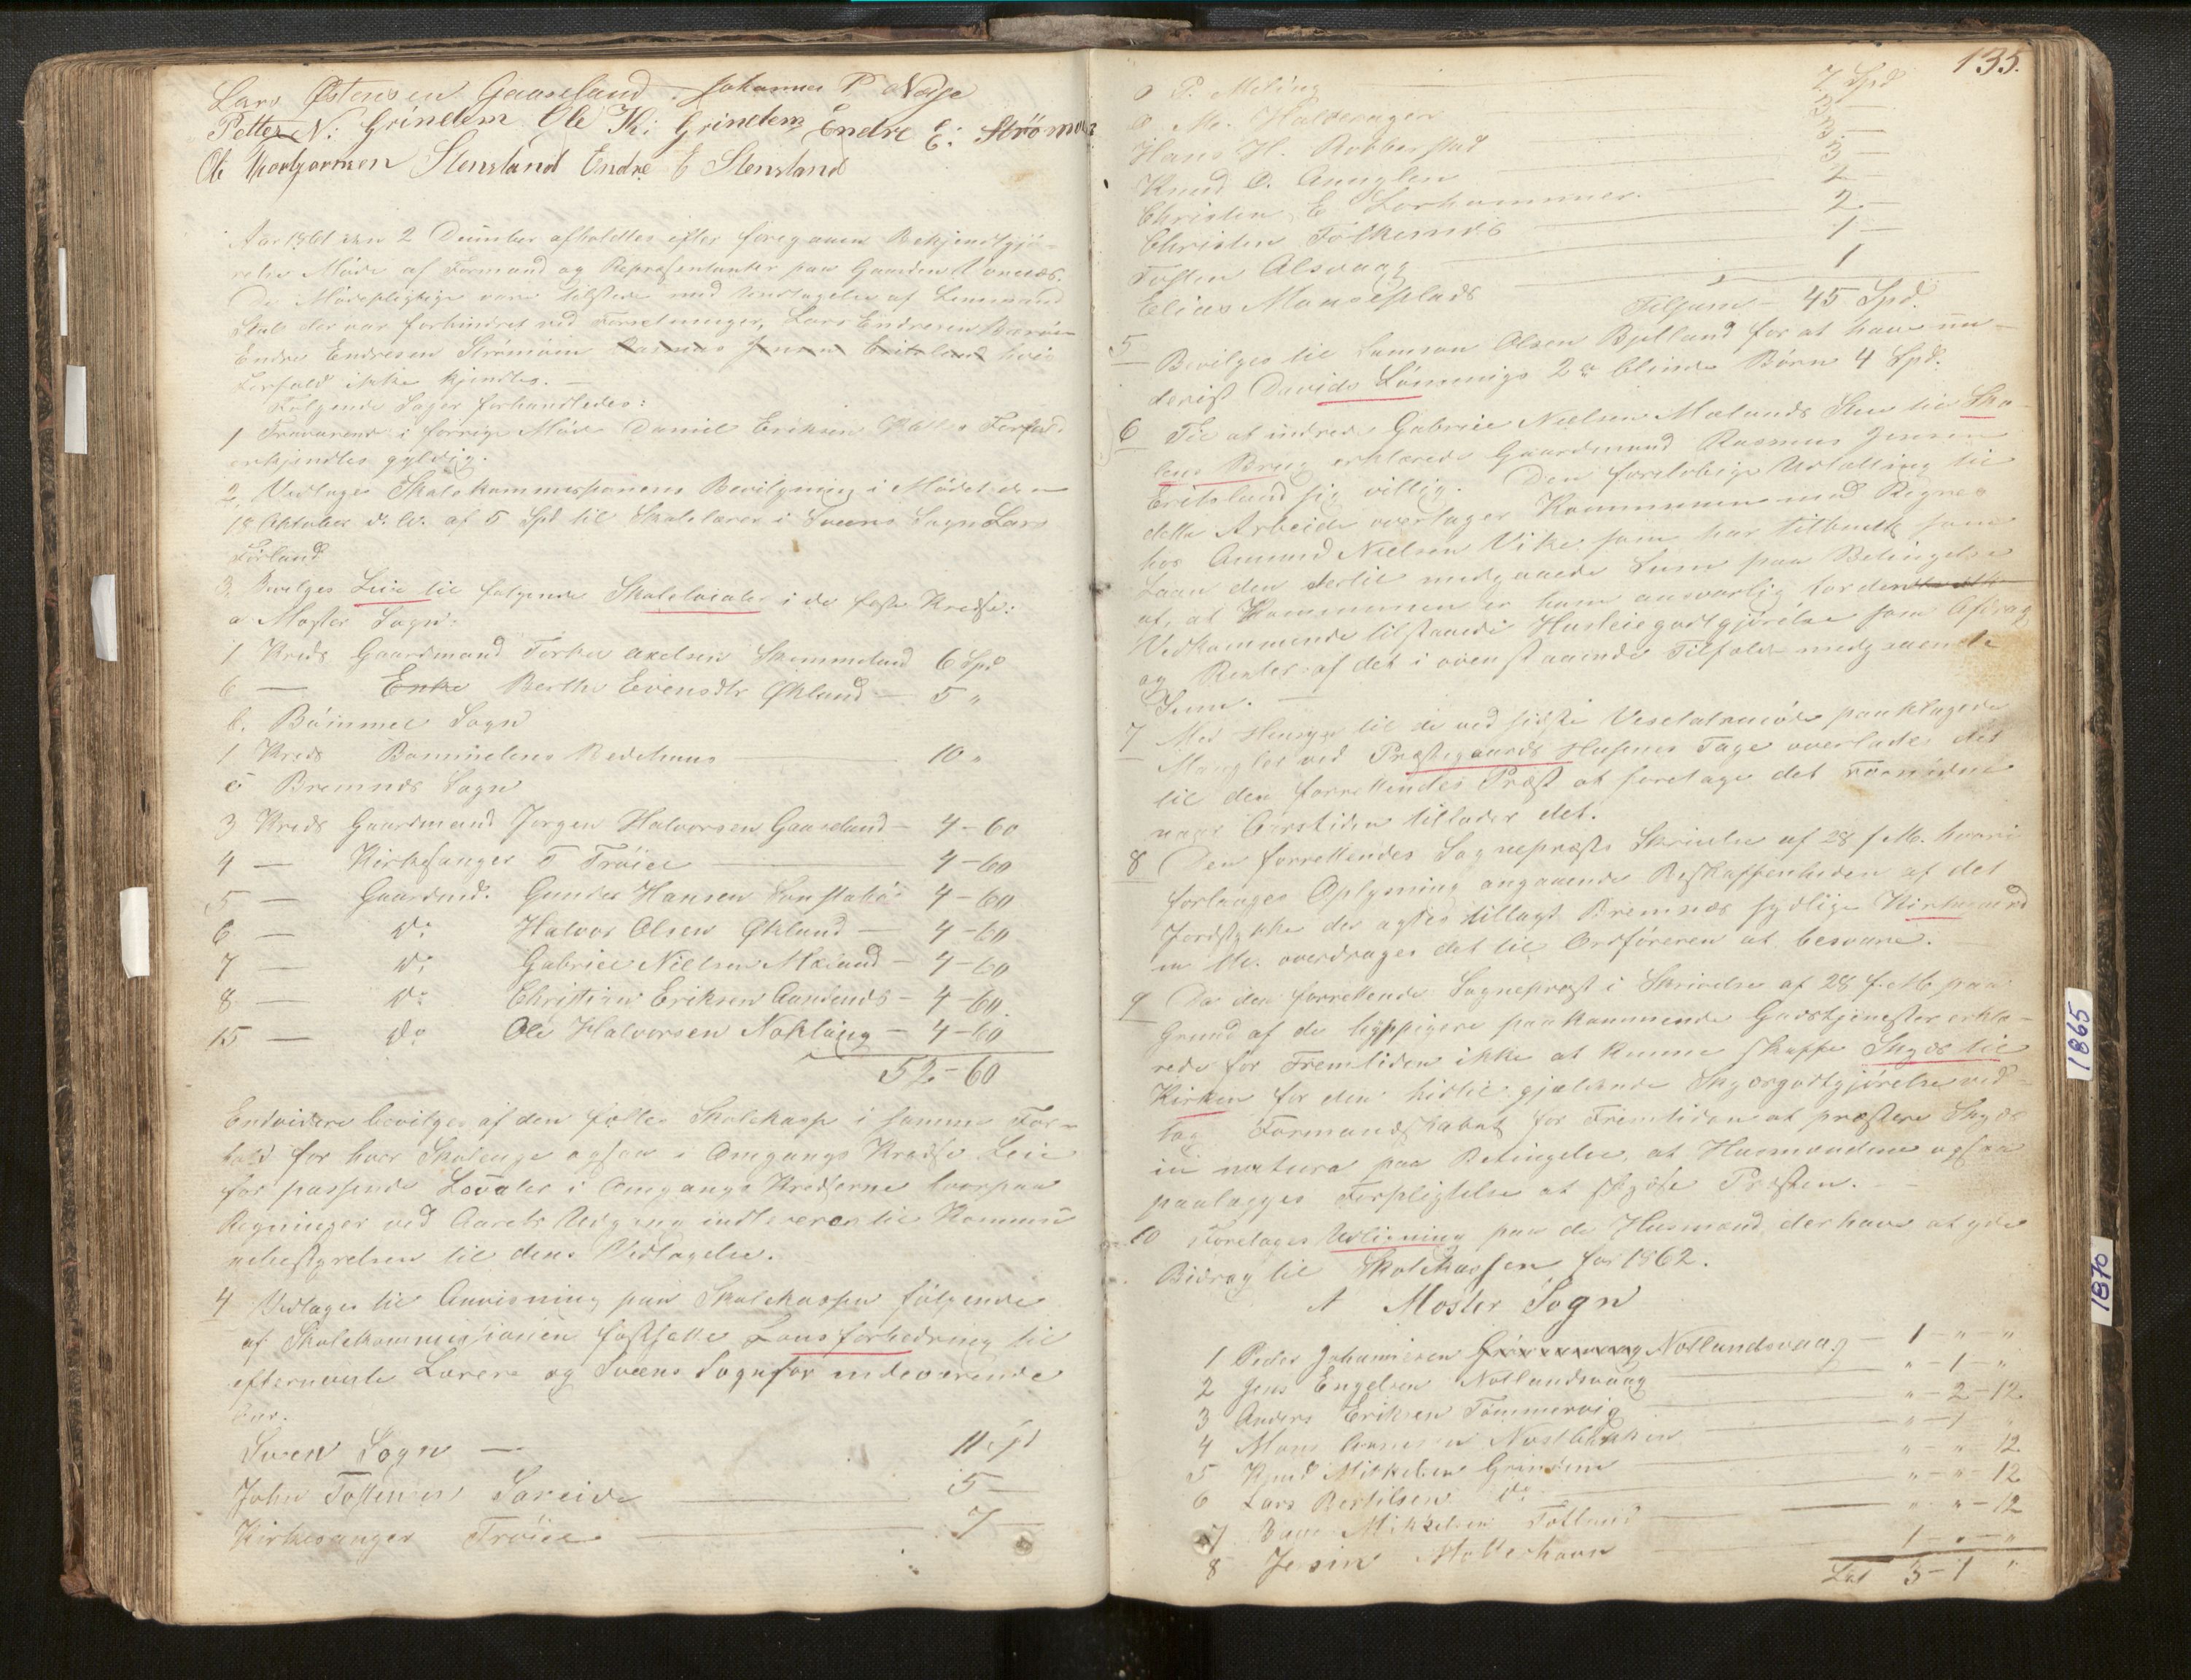 Lars Østensen Gaaseland. Johannes P
Petter N: Grindem Ole K: Grindem Endre E: Strømøen
Ole Stensland Endre E Stensland
Aar 1861 den 2 December afholdtes efter foregaaen Bekjendtgjø-
relse Møde af Formænd og Repræsentanter paa Gaarden
De Mødepligtige vare tilstede med Undtagelse af Lensmand
der var forhindret ved Forretninger, Lars Endresen
Endre Endresen Strømøen Rasmus Jensen Eritsland hvis
Forfald ikke kjendtes. —
Følgende Sager forhandledes:
1 Fraværende i forrige Møde Daniel Eriksen Forfald
erkjendtes gyldig.
2 Vedtages Skolekommissionens Bevilgning i Mødet den
18 Oktober d. A. af 5 Spd til Skolelærer i Sveens Sogn Lars
Førland
3. Bevilges Leie til følgende Skolelocaler i de faste Kredse:
a Moster Sogn:
1 Kreds Gaardmand Torkel Axelsen 6 Spd
6 — Enke Berthe Eviensdtr Økland — 5 "
b. Bømmel Sogn
1 Kreds Bømmelens Bedehuus 10 "
c Bremnes Sogn
3 Kreds Gaardmand Jørgen Halvorsen Gaaseland — 4-60
4 — Kirkesanger T Trøiel 4-60
5 — Gaardmd. Gunder Hansen 4-60
6 — do Halvor Olsen Økland — 4-60
7 — do Gabriel Nielsen Mæland — 4-60
8 — do Christian Eriksen — 4-60
15 — do Ole Halvorsen Nokling — 4-60
52-60
Endvidere bevilges af den fælles Skolekasse i samme For-
hold for hver Skoleuge ogsaa i Omgangs Kredse Leie
for passende Locale i Omgangs Kredserne hvorpaa
Regninger ved Aarets Udgang indleveres til Kommu
nebestyrelsen til dens Vedtagelse.
4 Vedtages til Anvisning paa Skolekassen følgende
af Skolekommissionen fastsatte Lønsforbedring til
efternævnte Lærere og Sveens Sogn for indeværende
Aar.
Sveen Sogn — 11 Spd
John Tostensen Sareide 5 —
Kirkesanger Trøiel 7 —
135.
O P. Meling 7 Spd
O M. 3 —
Hans H. Robberstad 3 —
Knud O. 3 —
Christen E 2 —
Christen 2 —
Tosten Alsvaag 1 —
Elias 1
Tilsam — 45 Spd.
5 Bevilges til Samson Olsen Bjelland for at have un-
derist Davids Lønnings 2de blinde Børn 4 Spd.
6 Til at indrede Gabriel Nielsen Mælands Stue til Sko-
lens Brug erklærede Gaardmand Rasmus Jensen
Eritsland sig villig. Den foreløbige Udtælling til
dette Arbeide overtager Kommunen med Regres
hos Amund Nielsen Vike som har tilbudt som
Laan den dertil medgaaede Sum paa Betingelse
af, at Kommunen er ham ansvarlig for den
Vedkommende tilstaaede Husleiegodtgjørelse som Afdrag
og Renter af det i ovenstaaende Tilfælde medgaaende
Sum. —
7 Med Hensyn til de ved sidste paaklagede
Mangler ved Præstegaards Husenes Tage overlades det
til den forrettendes Præst at foretage det
naar Aarstiden tillader det.
8 Den forrettendes Sognepræsts Skrivelse af 28 f. M. hvori
forlanges Oplysning angaaende Beskaffenheden af det
Jordstykke der agtes tillagt Bremnes sydlige Kirkegaard
m M. overdrages det til Ordføreren at besvare.
9 Da den forrettende Sognepræst i Skrivelse af 28 f. M. paa
Grund af de hyppigere paakommende Gudstjenester erklæ-
rede for Fremtiden ikke at kunne skaffe Skyds til
Kirken for den hidtil gjældende Skydsgodtgjørelse ved-
tog Formandskabet for Fremtiden at præstere Skyds
in natura paa Betingelse, at Husmændene ogsaa
paalægges Forpligtelse at skydse Præsten. —
10 Foretages Udligning paa de Husmænd der have at yde
Bidrag til Skolekassen for 1862.
A Moster Sogn
1 Peder Johannesen Notlandsvaag — 1 - " - "
2 Jens Engelsen Notlandsvaag " - 1 - "
3 Anders Eriksen Tømmervig " - 2 - 12
4 Mons " - 1 "
5 Knud Mikkelsen Grindem " - " - 12
6 Lars Bertilsen do " - " - 12
7 Mikkelsen Totland " - " - 12
8 Mosterhavn 1 - " - "
Lat 3 - 1 "
1865
1870